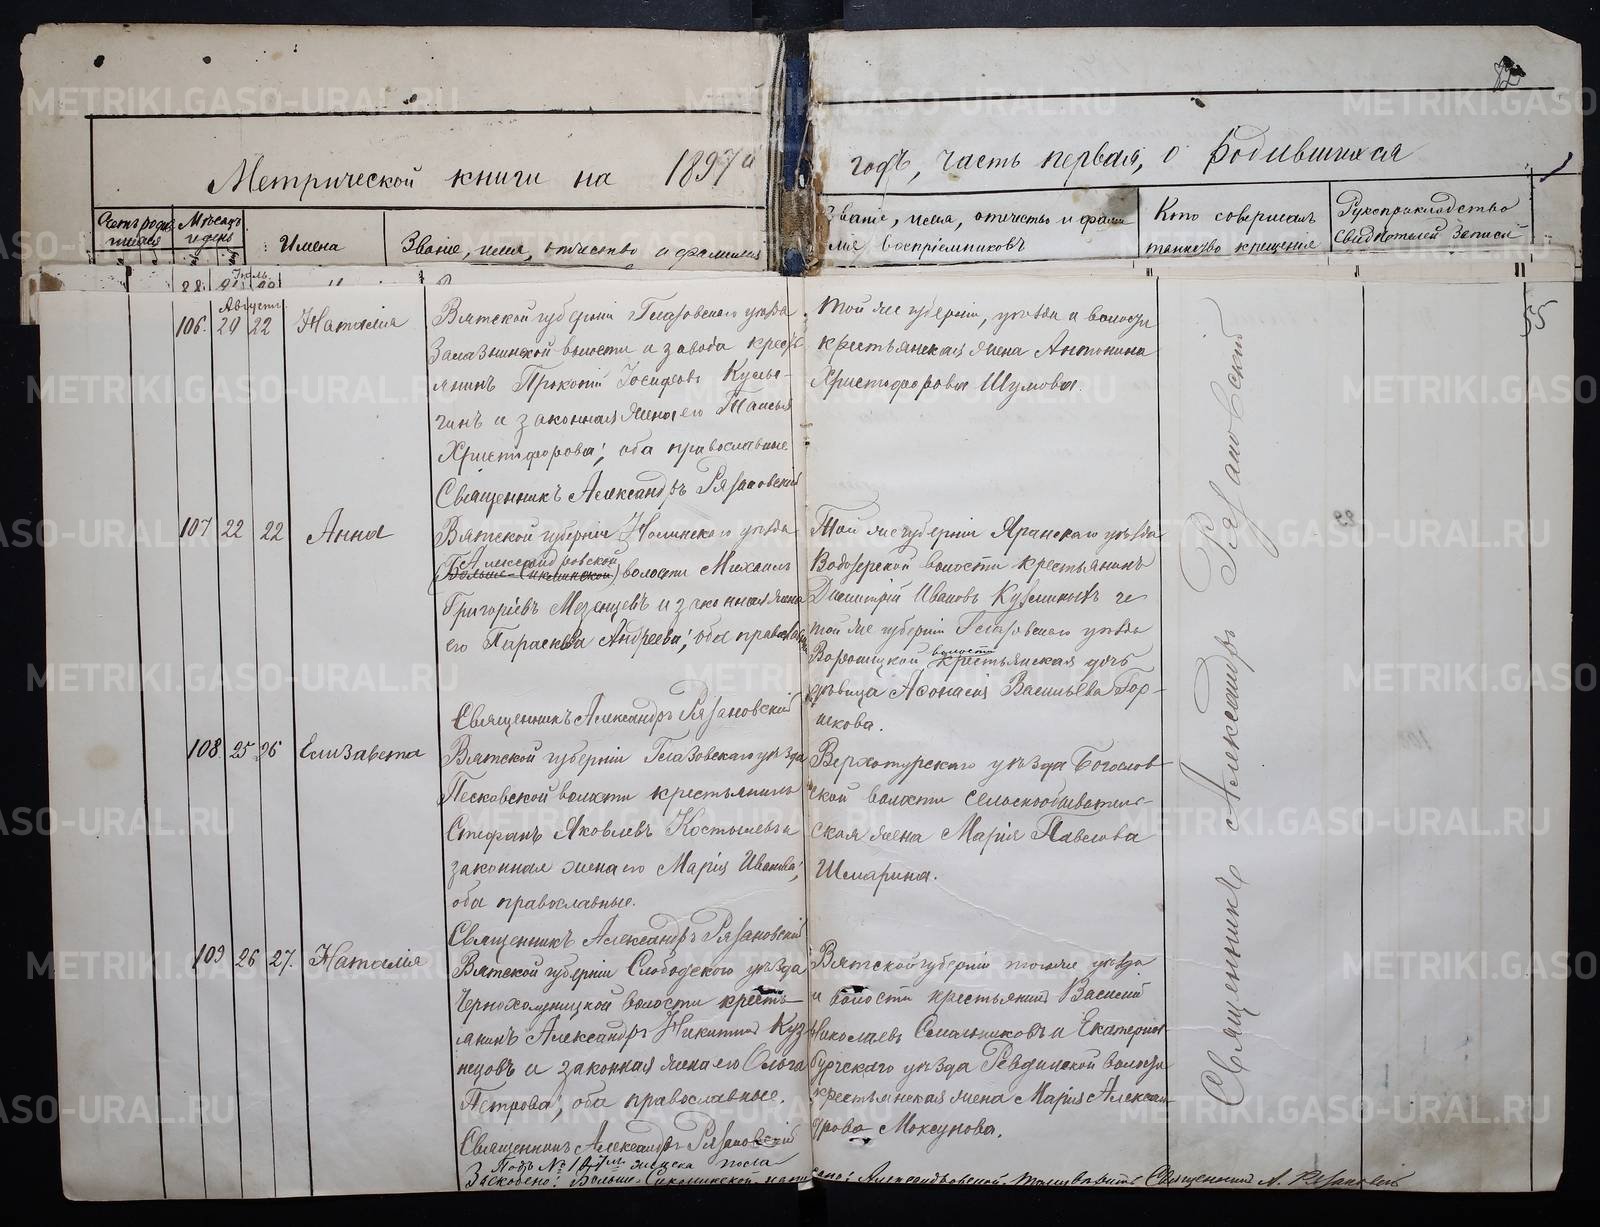 Метрической книги на 1897й годъ, часть первая, о родившихся
Счетъ родившихся
Мѣсяцъ и день
Имена
Званіе, имя, отчество и фамилія
Званіе, имя, отчество и фамилія воспріемниковъ
Кто совершалъ таинство крещенія
Рукоприкладство свидѣтелей записи
Іюль
Августъ
106. 20 22 Наталія
Вятской губерніи Глазовскаго уѣзда
Залазнинской волости и завода кресть-
янинъ Прокопій Іосифовъ
и законная жена его Таисья
Христофорова; оба православные
Священникъ Александръ Рязановскій
Той же губерніи, уѣзда и волости
крестьянская жена Антонина
Христофорова Шумова.
55
107 22 22 Анна
Вятской губерніи Нолинскаго уѣзда
Александровской
(Больше-Ситминской) волости Михаилъ
Григорьевъ Мезенцевъ и законная жена
его Параскева Андреева; оба православные
Священникъ Александръ Рязановскій
Той же губерніи Яранскаго уѣзда
Водозерской волости крестьянинъ
Димитрій Ивановъ Кузьминыхъ и
той же губерніи Глазовскаго уѣзда
волости
крестьянская дочь
дѣвица Афонасія Васильева Гор-
шкова.
108. 25 26 Елизавета
Вятской губерніи Глазовскаго уѣзда
Песковской волости крестьянинъ
Стефанъ Яковлевъ Костылевъ и
законная жена его Марія Иванова;
оба православные.
Священникъ Александръ Рязановскій
Верхотурскаго уѣзда Богослов-
ской волости сельскообыватель-
ская жена Марія Павлова
Шмарина.
109 26 27. Наталія
Вятской губерніи Слободскаго уѣзда
Чернохолуницкой волости кресть-
янинъ Александръ Никитинъ Куз-
нецовъ и законная жена его Ольга
Петрова; оба православные.
Священникъ Александръ Рязановскій
Вятской губерніи того же уѣзда
и волости крестьянинъ Василій
Николаевъ и Екатерин-
бургскаго уѣзда Ревдинской волости
крестьянская жена Марія Алексан-
дрова Моксунова.
Священникъ Александръ Рязановскій
Подъ № 107мъ
Заскобено: написано: Александровской Священникъ А. Рязановскій
METRIKI.GASO-URAL.RU